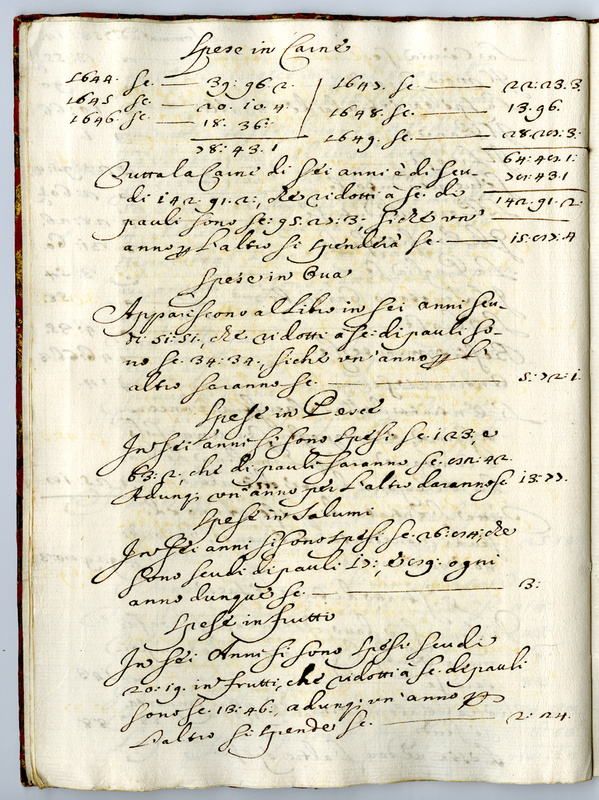 Spese in Carne
1644. sc. — 39: 96. 2.
1645 sc. — 20. 10. 4:
1646 sc — 18. 36:
78: 43. 1
1647. sc. — 22: 23. 3.
1648. sc. — 13. 96.
1649. sc. — 28.
64:
142. 91. 2.
Tutta la Carne di sei anni è di scu-
di 142. 91. 2:, che ridotti à sc. di
pauli sono sc: 95. 27: 3:, siche un'
anno p l'altro si spenderà sc. —
Spese in Oua
Appariscono al Libro in sei anni scu-
di 51: 51:, che ridotti à sc: di pauli so-
no sc. 34: 34:, siche un' anno p l'
altro saranno sc. — 5: 72: 1.
Spese in Pesce
In sei anni si sono spesi sc. 123: e
63: 2, che di pauli saranno sc. 42.
Adunq, un' anno per l'altro daranno sc 13: 77.
Spese in Salumi
In sei anni si sono spesi sc. 26: che
sono scudi di pauli 17:, ogni
anno dunque sc. — 3:
Spese in frutti
In sei Anni si sono spesi scudi
20: 19. in frutti, che ridotti à sc. di pauli
sono sc. 13: 46:, adunq, un' anno p
l'altro si spende sc. — 2: 24.